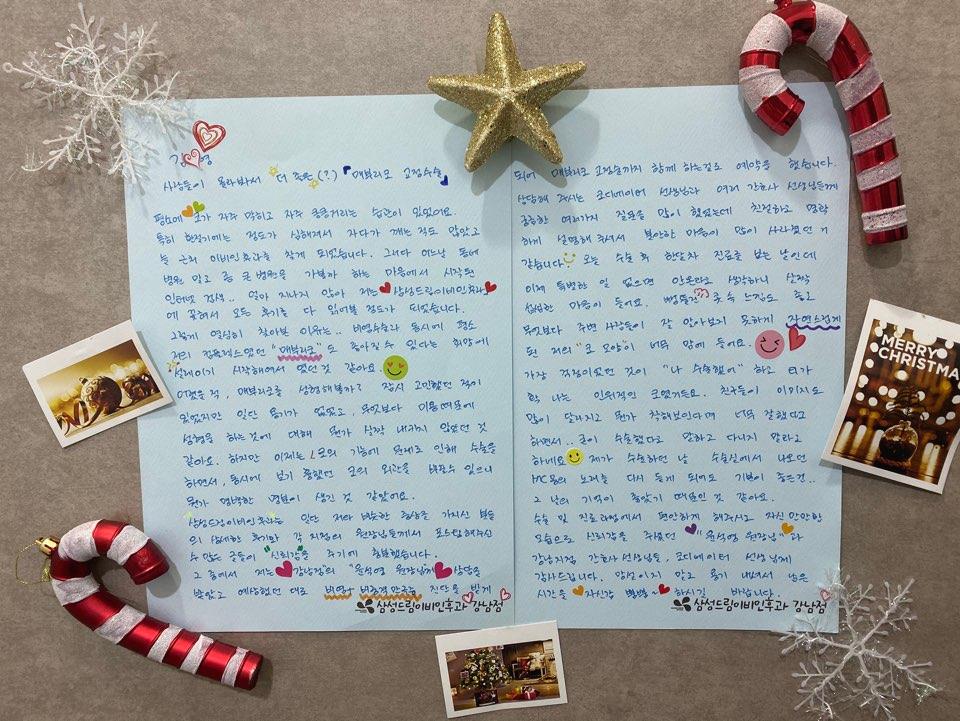 김 영
사람들이 몰라봐서 더 좋은(?) 『매부리코 교정수술』
평소에 코가 자주 막히고 자주 킁킁거리는 습관이 있었어요.
특히 환절기에는 정도가 심해져서 자다가 깨는 적도 많았고
늘 근처 이비인후과를 찾게 되었습니다. 그러다 어느날 동네
병원 말고 좀 큰 병원을 가볼까 하는 마음에서 시작된
인터넷 검색.. 얼마 지나지 않아 저는 삼성드림이비인후과
에 꽂혀서 모든 후기를 다 읽어볼 정도가 되었습니다.
그렇게 열심히 찾아본 이유는.. 비염수술과 동시에 평소
저의 컴플렉스였던 "매부리코"도 좋아질 수 있다는 희망에
설레이기 시작해서 였던 것 같아요
어렸을 적, 매부리코를 성형해볼까? 잠시 고민했던 적이
있었지만 일단 용기가 없었고, 무엇보다 미용때문에
성형을 하는것에 대해 뭔가 살짝 내키지 않았던 것
같아요. 하지만 이제는 코의 기능에 문제로 인해 수술을
하면서, 동시에 보기 흉했던 코의 외관을 바꿀수 있으니
뭔가 명백한 명분이 생긴 것 같았어요.
삼성드림이비인후과는 일단 저와 비슷한 증상을 가지신 분들
의 상세한 후기와 각 지점의 원장님들께서 포스팅해주신
수 많은 글들이 "신뢰감"을 주기에 충분했습니다.
그 중에서 저는 강남점의 "윤석영 원장님께 상담을
받았고 예상했던 대로 비염과 비중격만곡증 진단을 받게
삼성드림이비인후과 강남점
되어 매부리코 교정술까지 함께 하는걸로 예약을 했습니다.
상담해 주시는 코디네이터 선생님과 여러 간호사 선생님들께
궁금한 여러가지 질문을 많이 했었는데 친절하고 명확
하게 설명해 주셔서 불안한 마음이 많이 사라졌던 거
같습니다. 오늘 수술 후 한달차 진료를 보는 날인데
이제 특별한 일 없으면 안온다고 생각하니 살짝
섭섭한 마음이 들어요. 뻥뚫린 콧 속 느낌도 좋고
무엇보다 주변 사람들이 잘 알아보지 못하게 자연스럽게
된 저의 "코 모양"이 너무 맘에 들어요.
가장 걱정이었던 것이 "나 수술했어" 하고 티가
확 나는 인위적인 모양이었거든요. 친구들이 이미지도
많이 달라지고 뭔가 착해보인다며 너무 잘했다고
하면서.. 굳이 수술했다고 말하고 다니지 말라고
하네요 제가 수술하던 날 수술실에서 나오던
MC몽의 노래를 다시 듣게 되어도 기분이 좋은건..
그 날의 기억이 좋았기 때문인 것 같아요.
수술 및 진료과정에서 편안하게 해주시고 자신만만한
모습으로 신뢰감을 주셨던 "윤석영 원장님"과
강남지점 간호사선생님들, 코디네이터 선생님께
감사드립니다. 망설이지 말고 용기 내셔서 남은
시간을 자신감 뿜뿜~ 하시길 바랍니다.
삼성드림이비인후과 강남점
MERRY
CHRISTMA